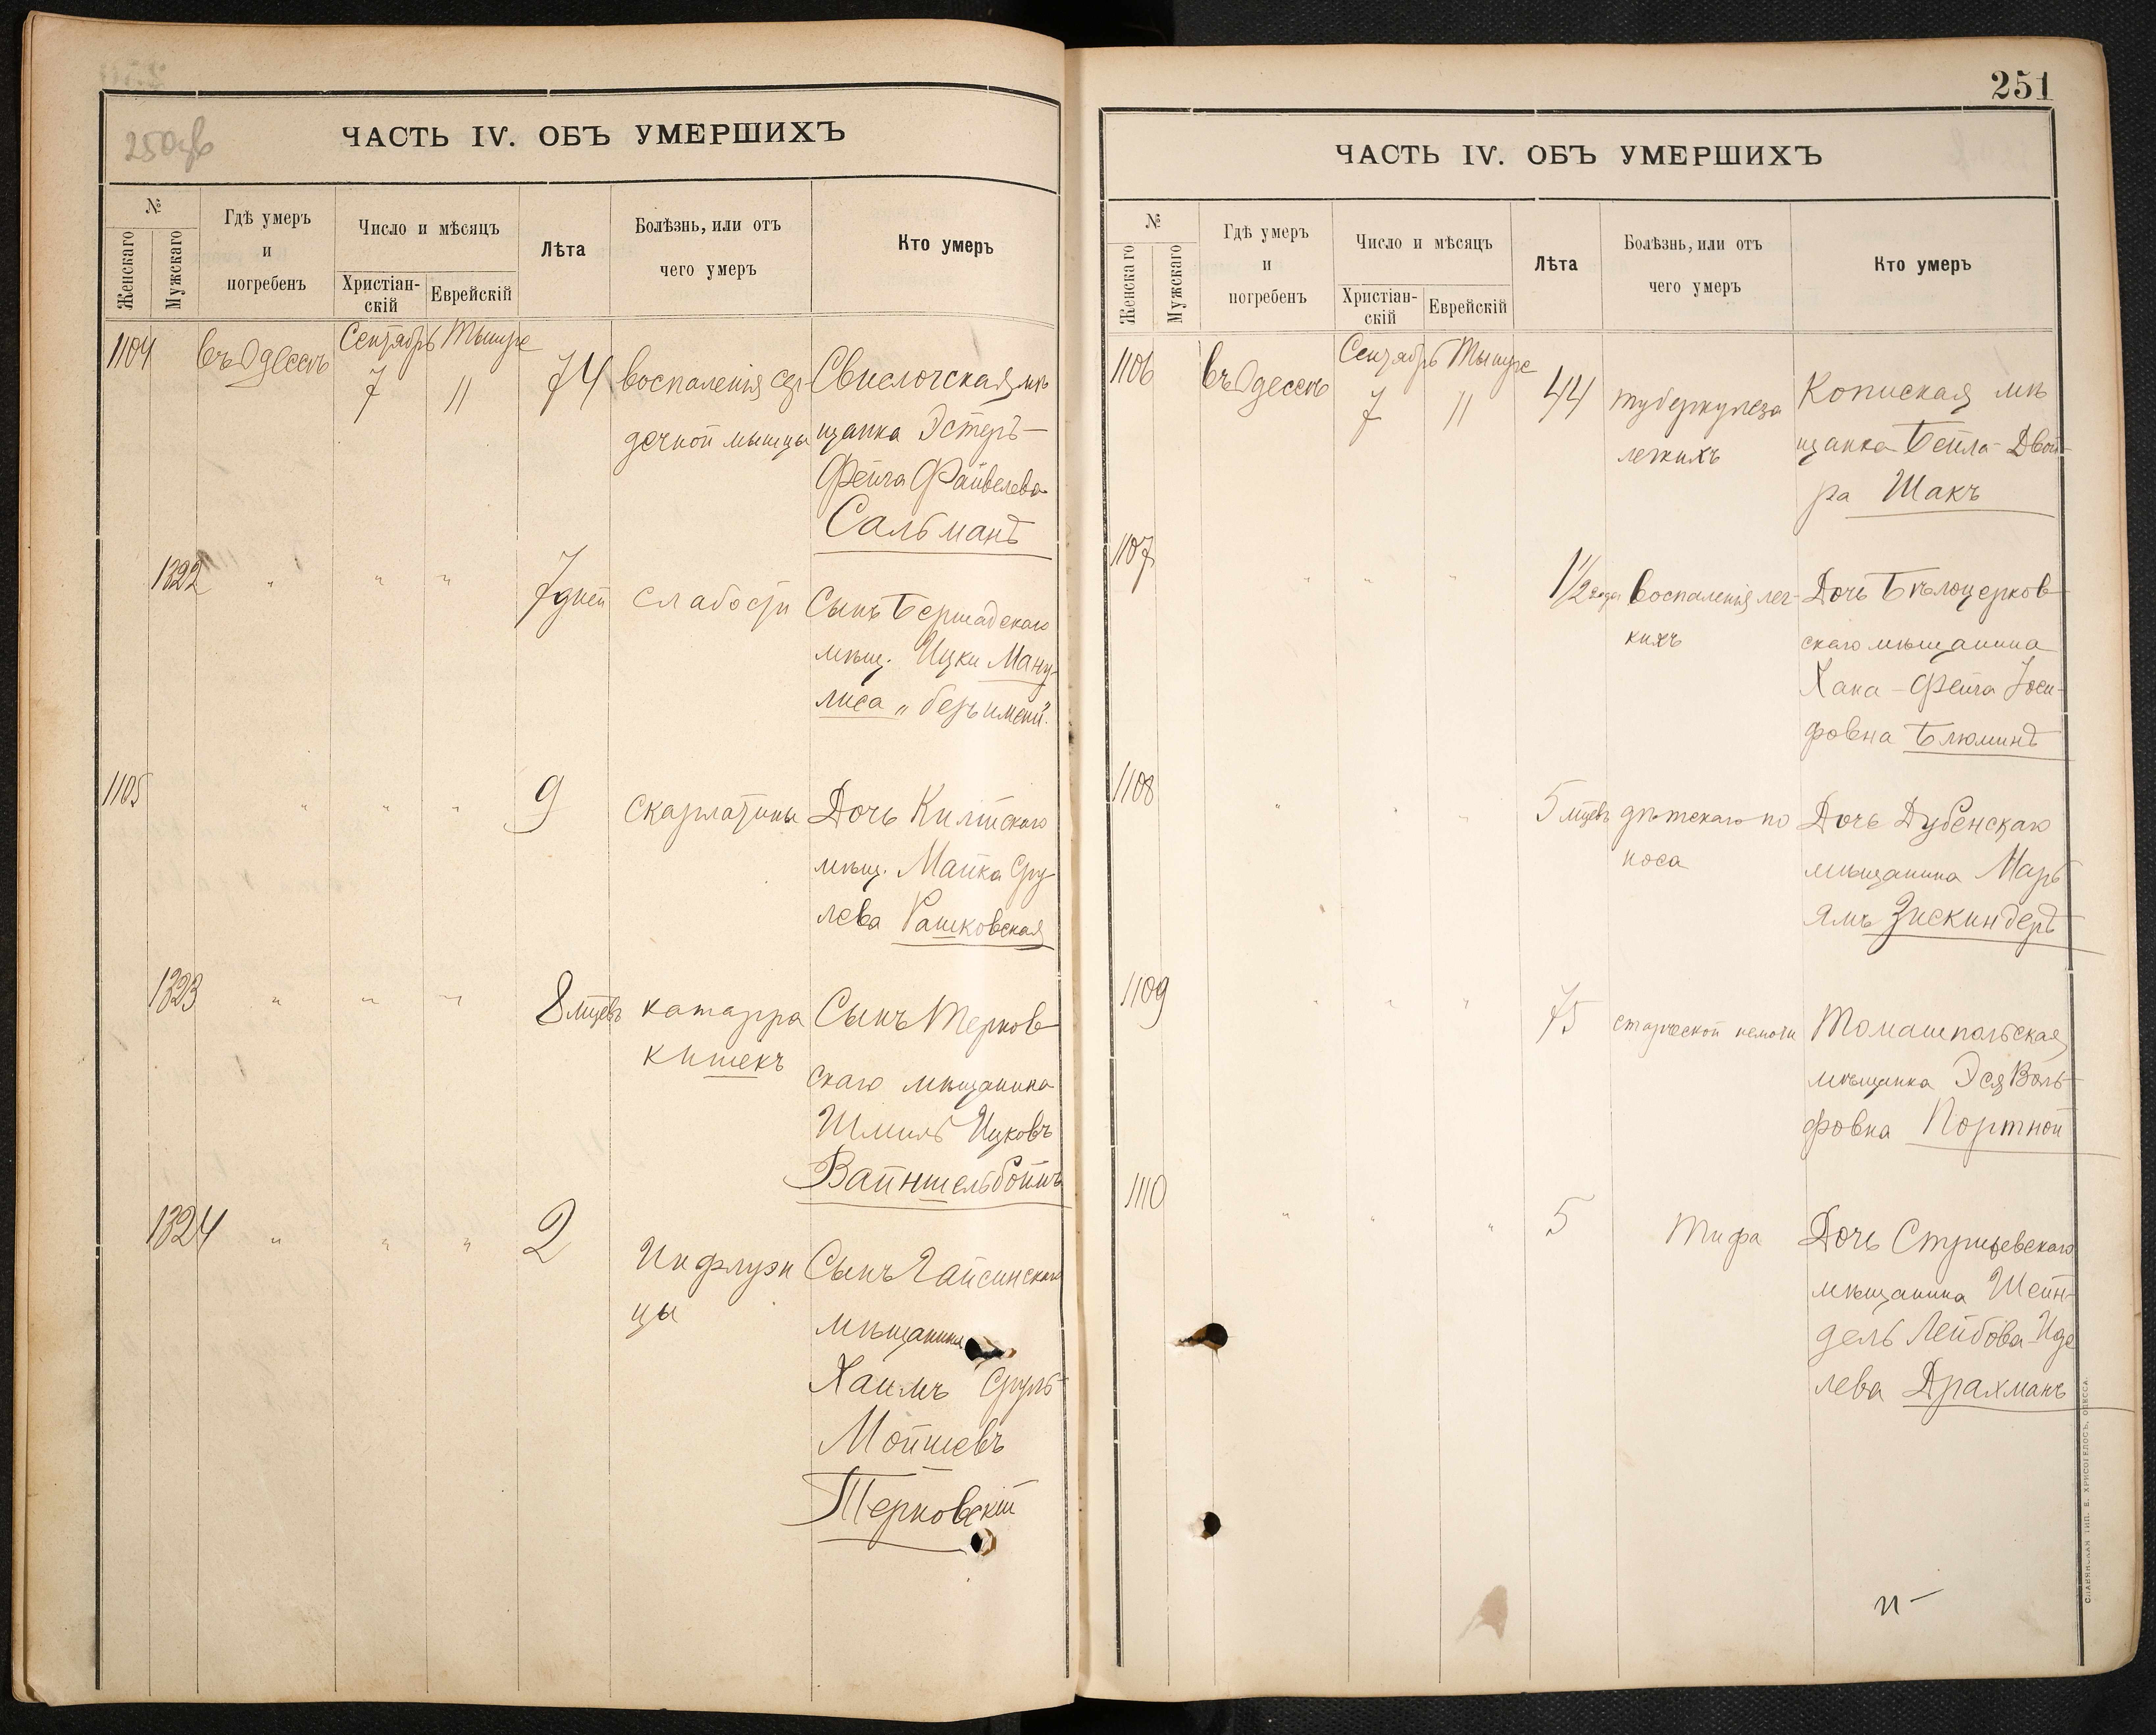 250об
ЧАСТЬ IV. ОБЪ УМЕРШИХЪ
№
Женскаго
Мужскаго
Гдѣ умеръ
и
погребенъ
Число и мѣсяцъ
Христіан-
скій
Еврейскій
Лѣта
Болѣзнь, или отъ
чего умеръ
Кто умеръ
1104 въ Одессѣ Сентябрь Тышре
7 11 74 воспаленія сер- Свислочская мѣ
дечной мышцы щанка Эстеръ-
Фейга Файвелева
Сальманъ
1322 " " " 7 дней слабости Сынъ Бершадскаго
мѣщ. Ицки Ману-
лиса „безъ имени".
1105 " " " 9 скарлатины Дочь Килійскаго
мѣщ. Майка Сру-
лева Рашковская
1323 " " " 8 мцевъ катарра Сынъ Терков
кишекъ скаго мѣщанина
Шмиль Ицковъ
Вайншельбоймъ
1324 " " " 2 Инфлуэн Сынъ Гайсинскаго
цы мѣщанина
Хаимъ Сруль-
Мойшевъ
Терковскій
251
ЧАСТЬ IV. ОБЪ УМЕРШИХЪ
№
Женскаго
Мужскаго
Гдѣ умеръ
и
погребенъ
Число и мѣсяцъ
Христіан-
скій
Еврейскій
Лѣта
Болѣзнь, или отъ
чего умеръ
Кто умеръ
1106 въ Одессѣ Сентябрь Тышре
7 11 44 туберкулеза Копиская мѣ
легкихъ щанка Бейла-Двой-
ра Шакъ
1107 " " " 1 1/2 года воспаленія лег- Дочь Бѣлоцерков
кихъ скаго мѣщанина
Хана-Фейга Іоси-
фовна Блюминъ
1108 " " " 5 мцевъ дѣтскаго по Дочь Дубенскаго
носа мѣщанина Марь
ямъ Зискиндеръ
1109 " " " 75 старческой немочи Томашпольская
мѣщанка Эся Воль-
фовна Портной
1110 " " " 5 Тифа Дочь Стрижевскаго
мѣщанина Шейн-
дель Лейбова-Иде
лева Драхманъ
СЛАВЯНСКАЯ ТИП. Е. ХРИСОГЕЛОСЪ, ОДЕССА.